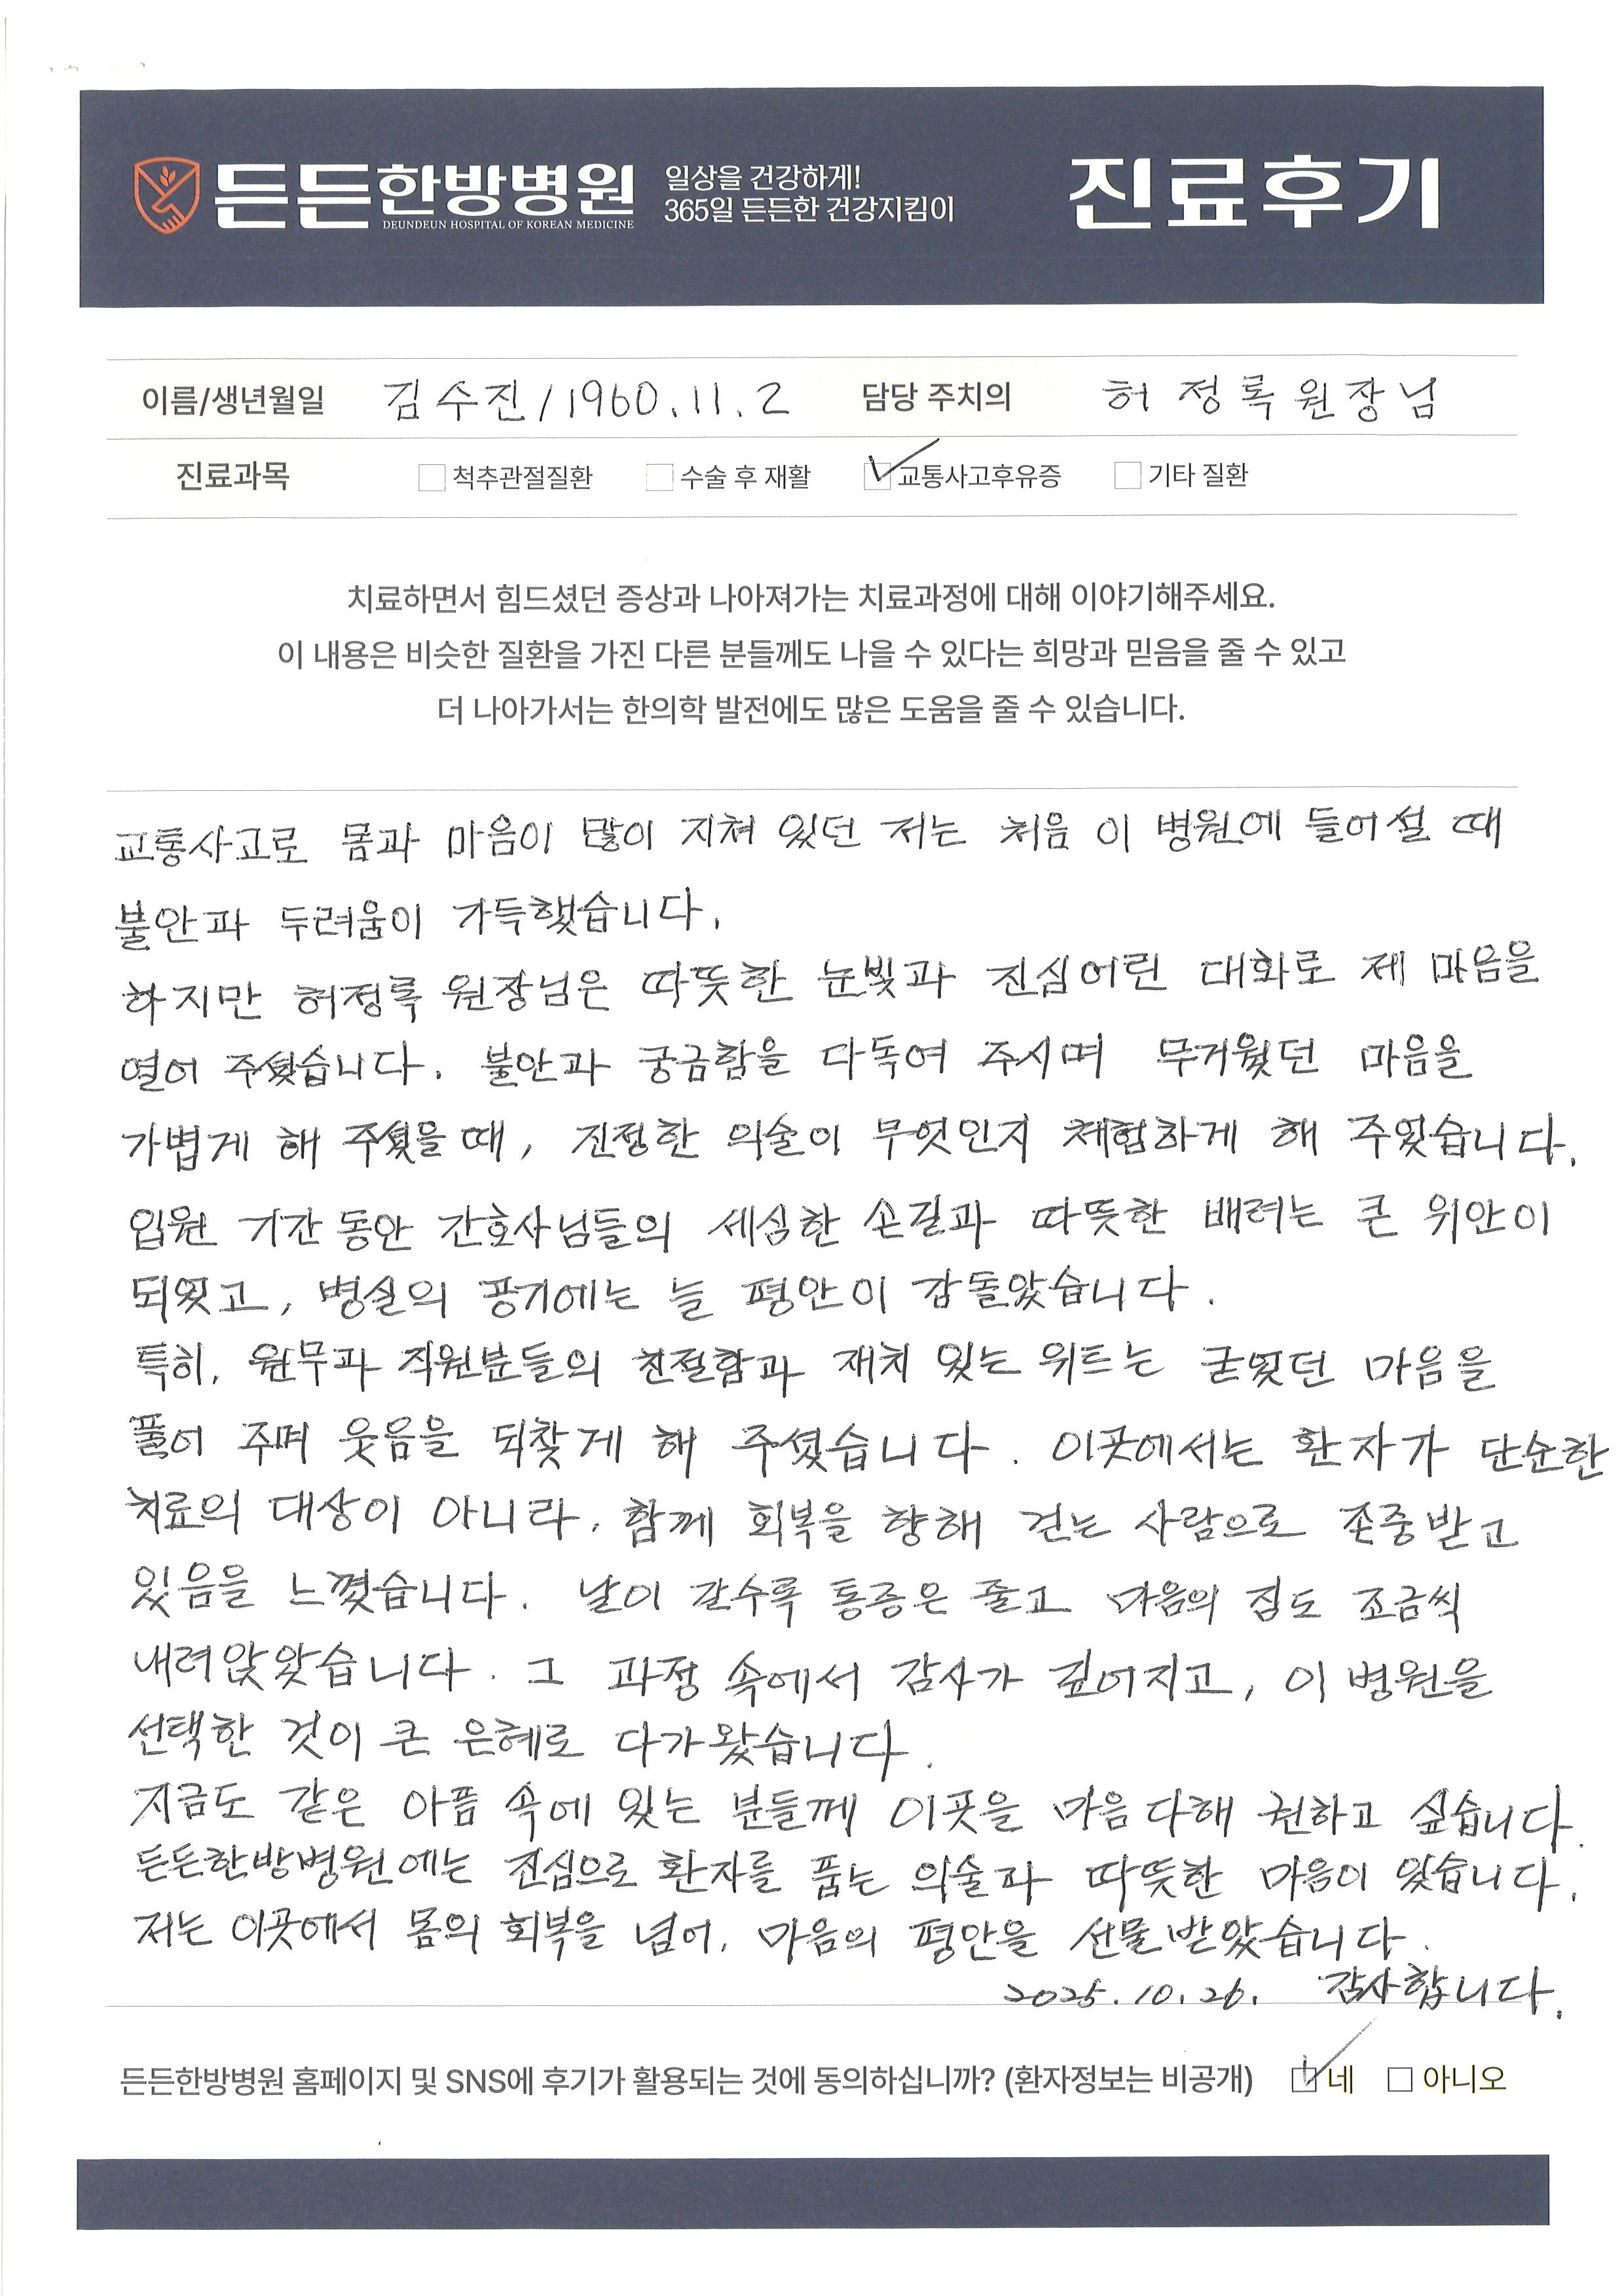 든든한방병원
DEUNDEUN HOSPITAL OF KOREAN MEDICINE
일상을 건강하게!
365일 든든한 건강지킴이
진료후기
이름/생년월일 김수진/1960.11.2 담당 주치의 허정록원장님
진료과목 척추관절질환 수술 후 재활 교통사고후유증 기타 질환
치료하면서 힘드셨던 증상과 나아져가는 치료과정에 대해 이야기해주세요.
이 내용은 비슷한 질환을 가진 다른 분들께도 나을 수 있다는 희망과 믿음을 줄 수 있고
더 나아가서는 한의학 발전에도 많은 도움을 줄 수 있습니다.
교통사고로 몸과 마음이 많이 지쳐 있던 저는 처음 이 병원에 들어설 때
불안과 두려움이 가득했습니다.
하지만 허정록 원장님은 따뜻한 눈빛과 진심어린 대화로 제 마음을
열어 주셨습니다. 불안과 궁금함을 다독여 주시며 무거웠던 마음을
가볍게 해 주셨을 때, 진정한 의술이 무엇인지 체험하게 해 주었습니다.
입원 기간 동안 간호사님들의 세심한 손길과 따뜻한 배려는 큰 위안이
되었고, 병실의 공기에는 늘 평안이 감돌았습니다.
특히, 원무과 직원분들의 친절함과 재치 있는 위트는 굳었던 마음을
풀어 주며 웃음을 되찾게 해 주셨습니다. 이곳에서는 환자가 단순한
치료의 대상이 아니라, 함께 회복을 향해 걷는 사람으로 존중받고
있음을 느꼈습니다. 날이 갈수록 통증은 줄고 마음의 짐도 조금씩
내려앉았습니다. 그 과정 속에서 감사가 깊어지고, 이 병원을
선택한 것이 큰 은혜로 다가왔습니다.
지금도 같은 아픔 속에 있는 분들께 이곳을 마음 다해 권하고 싶습니다.
든든한방병원에는 진심으로 환자를 품는 의술과 따뜻한 마음이 있습니다.
저는 이곳에서 몸의 회복을 넘어, 마음의 평안을 선물받았습니다.
2025.10.26. 감사합니다.
든든한방병원 홈페이지 및 SNS에 후기가 활용되는 것에 동의하십니까? (환자정보는 비공개) 네 아니오